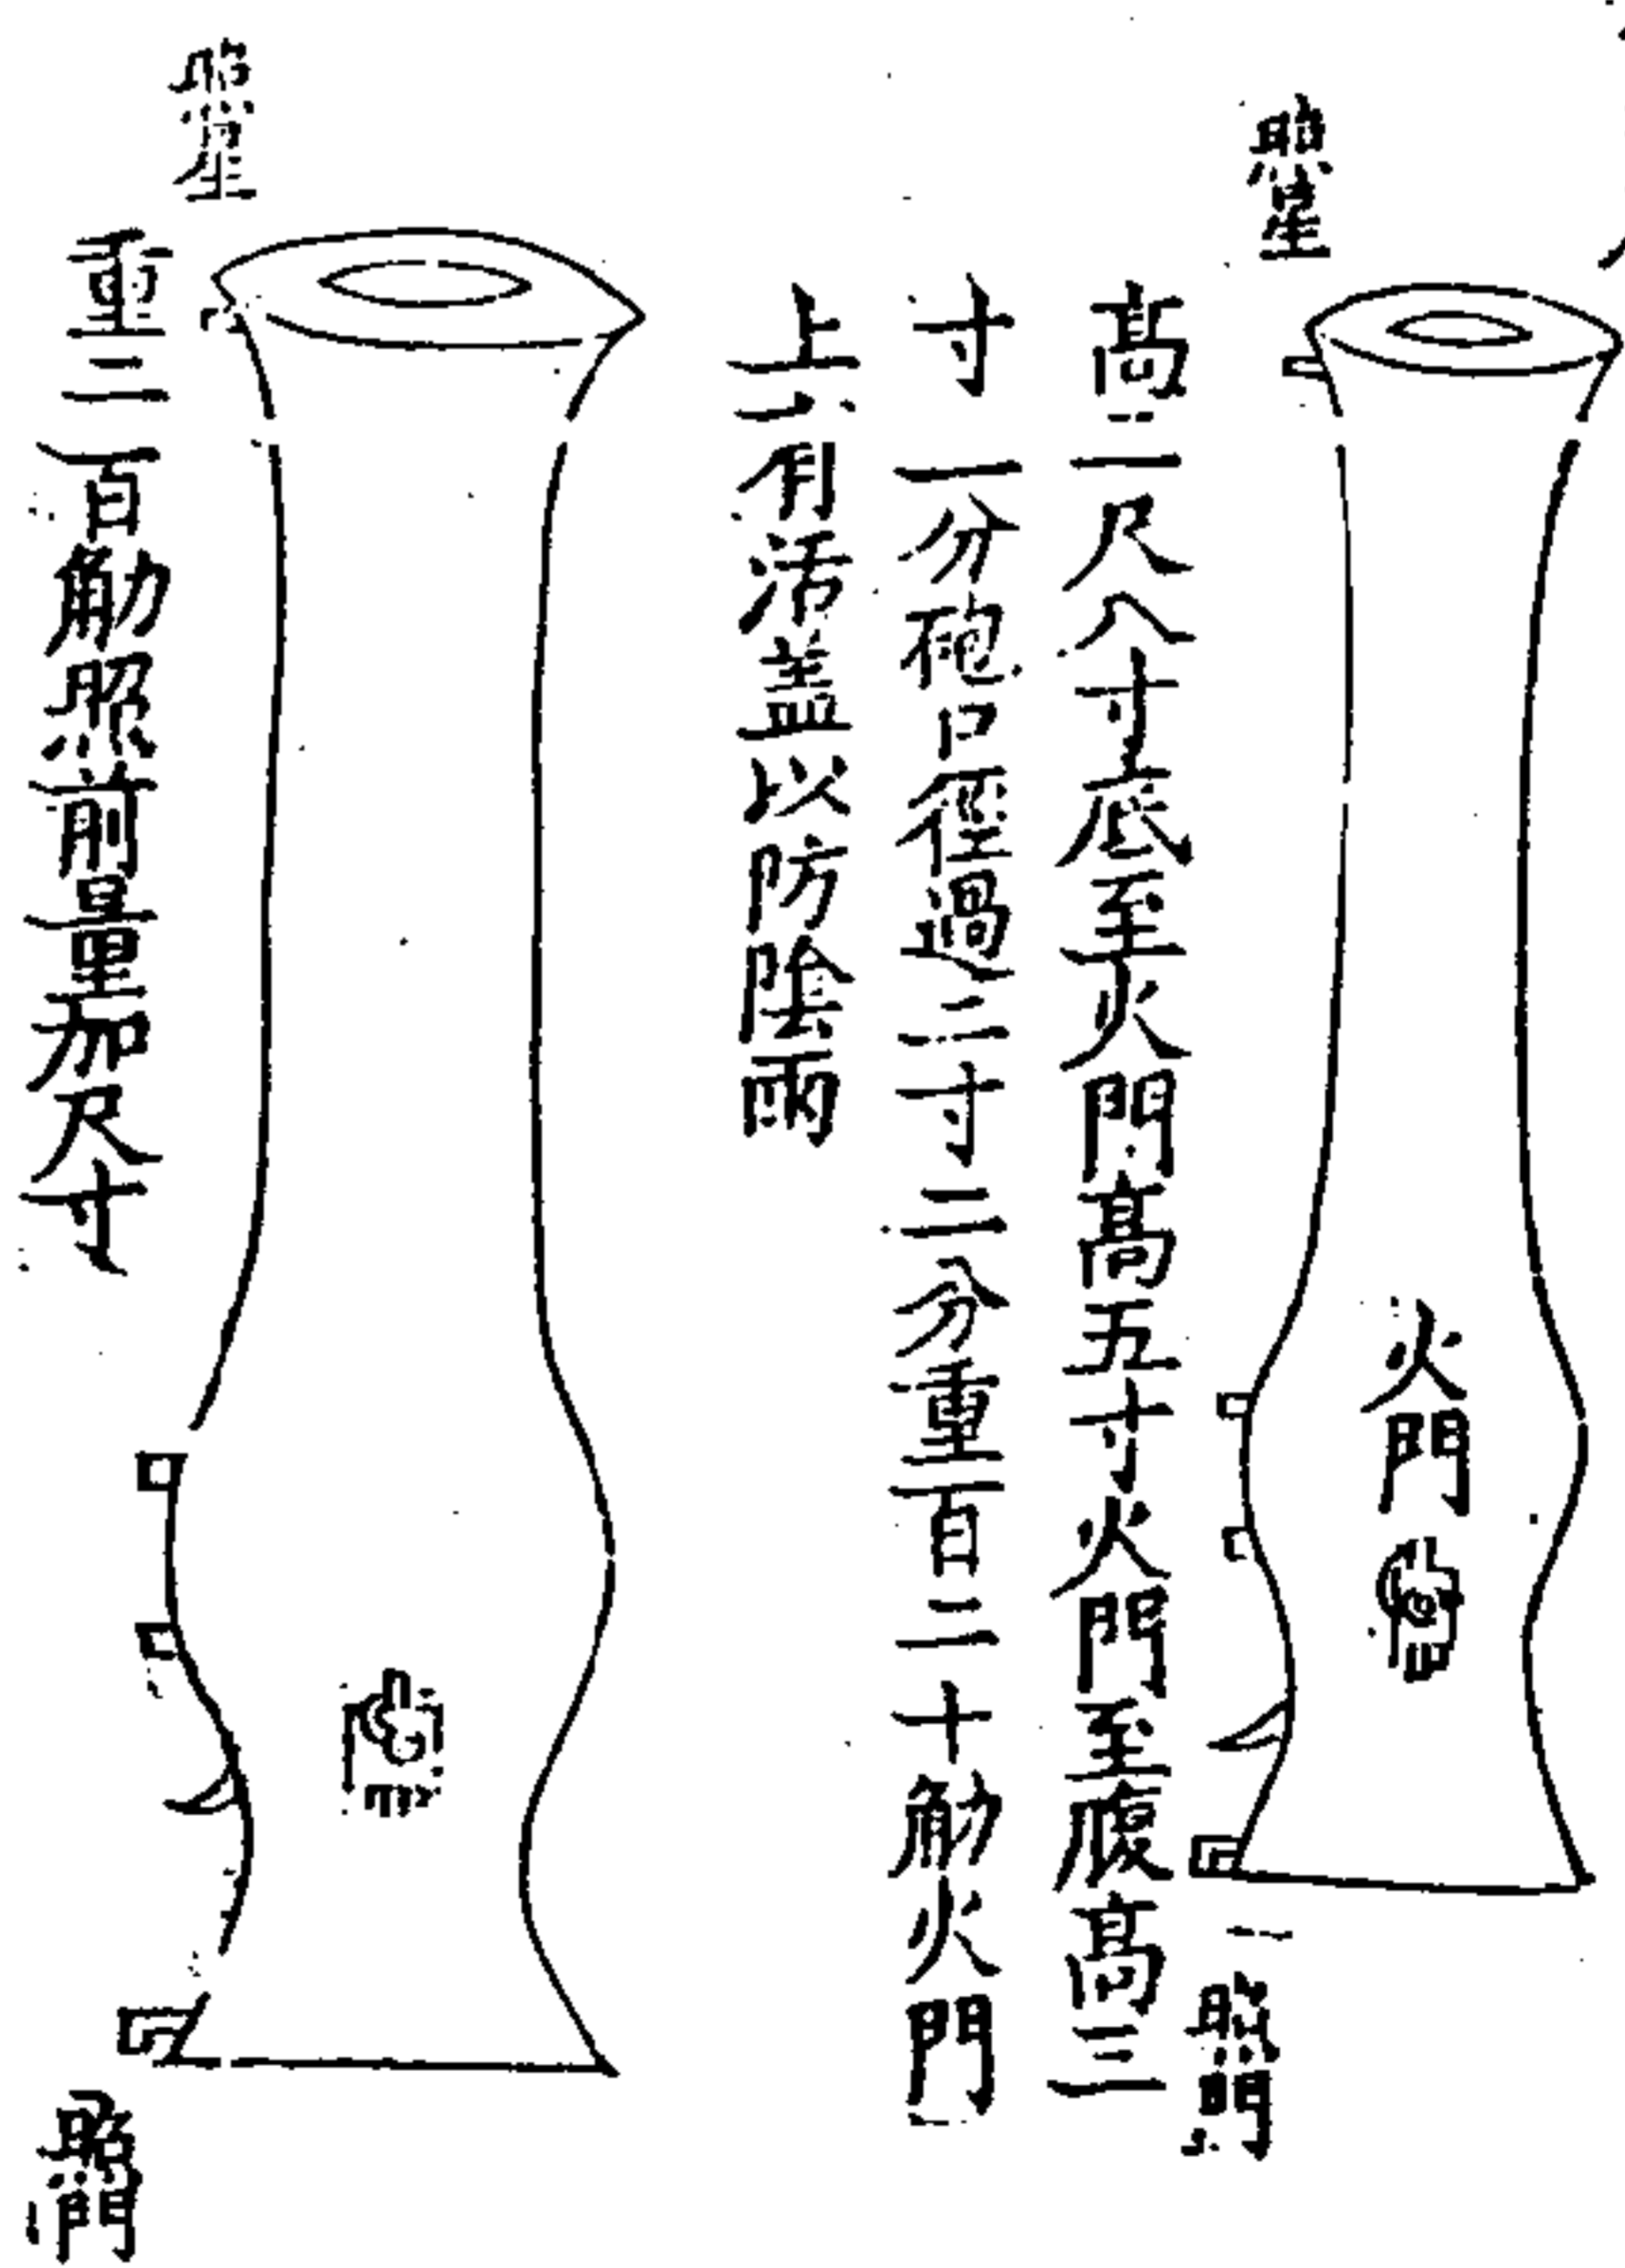 照星
火門
照門
高二尺八寸底至火門高五寸火門至腹高三
寸一分砲口徑過二寸二分重百二十觔火門
上有活盖以防陰雨
照星
照門
重二百觔照前量加尺寸